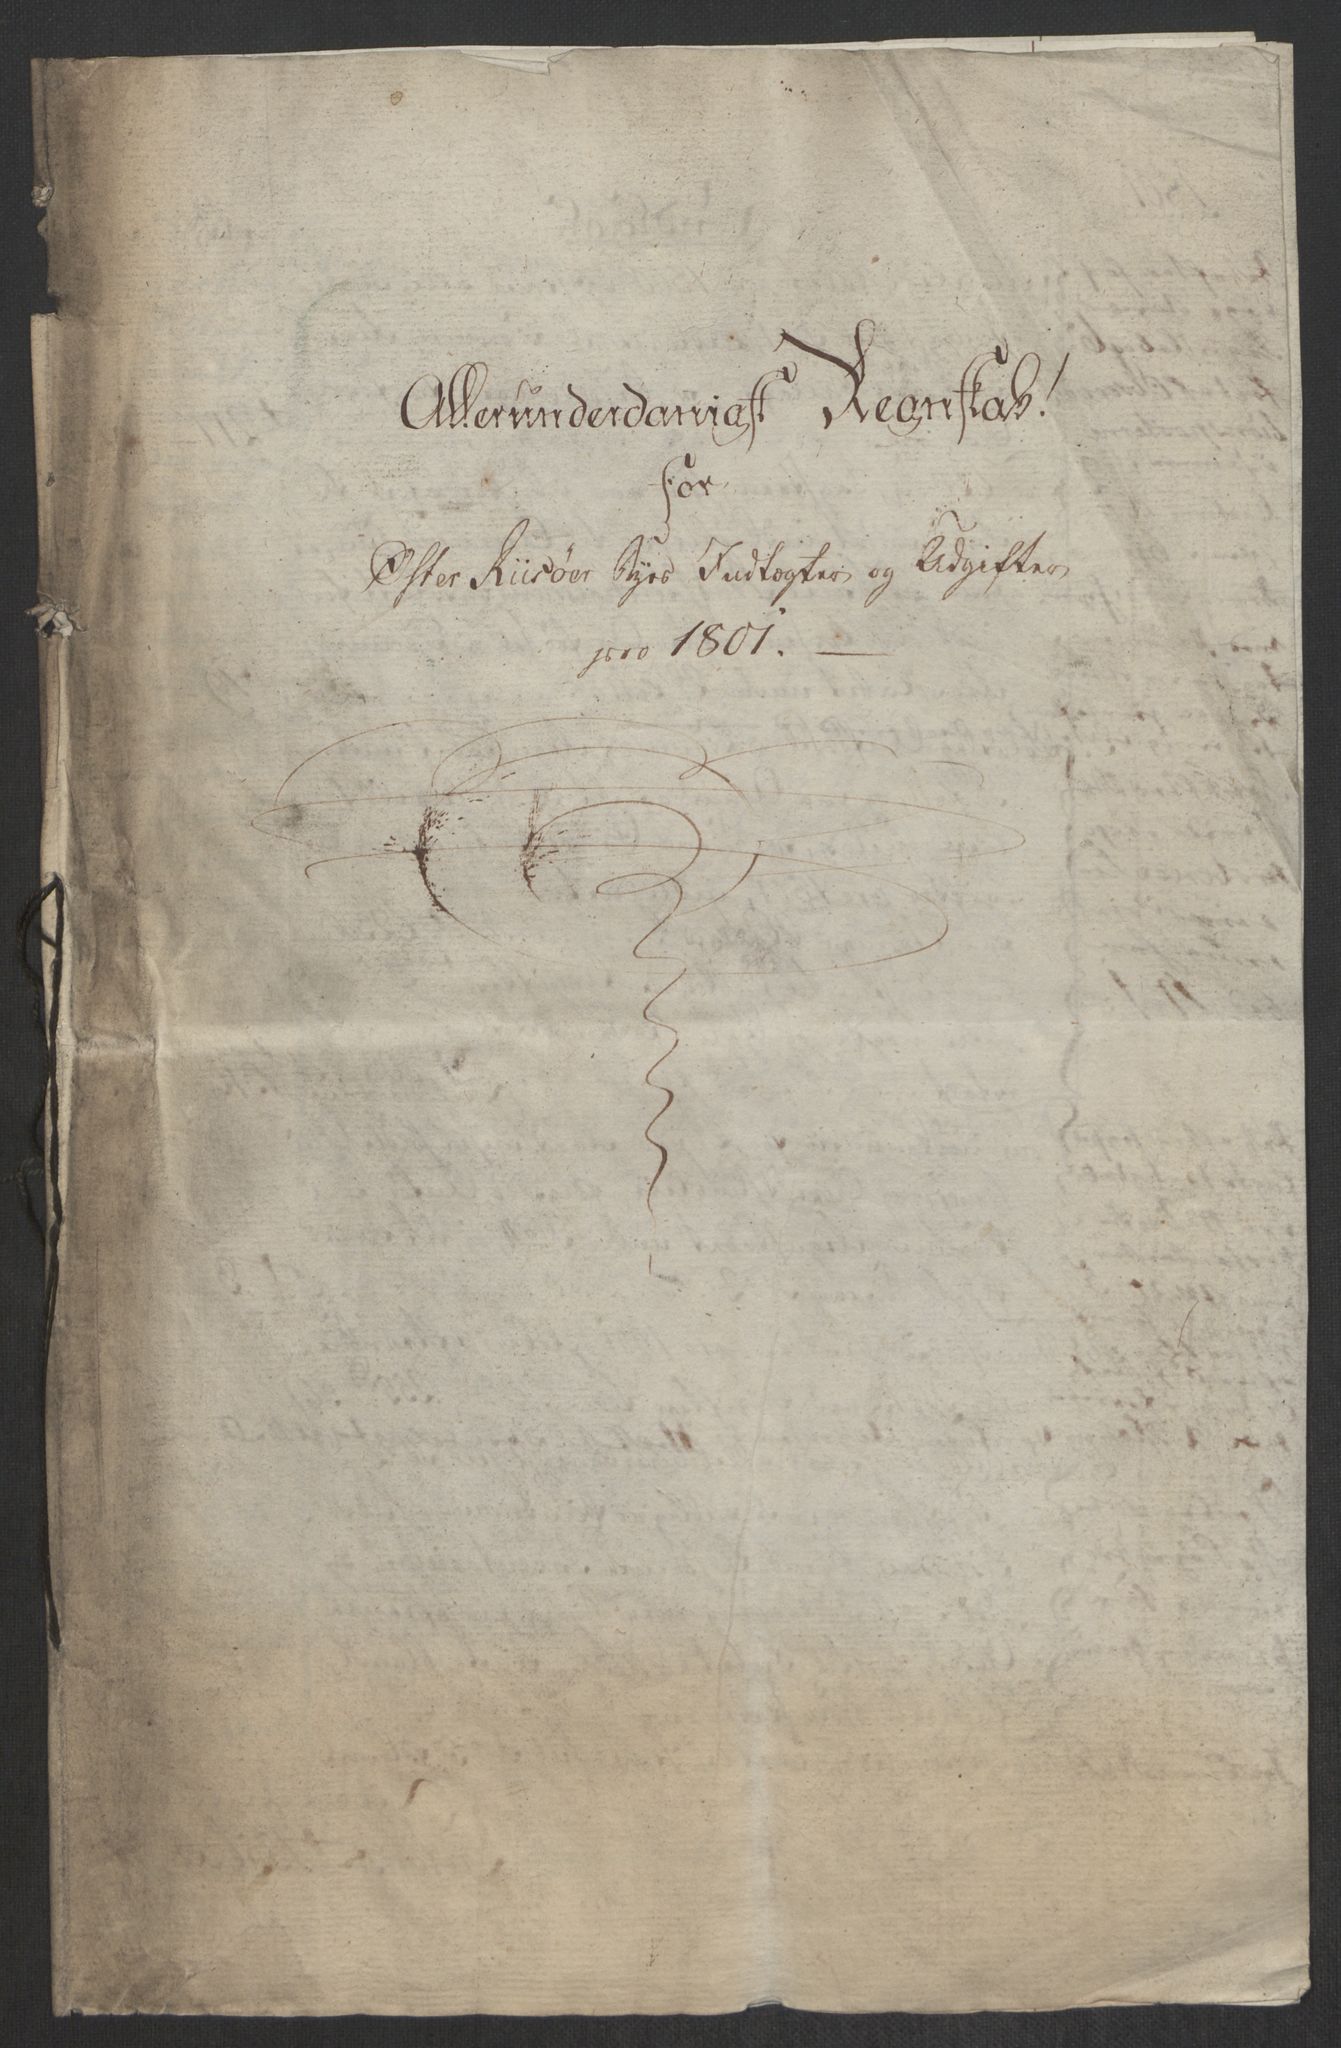 Allerunderdanigst Regnskab!
for
Øster Riisøer Byes Indtægter og Udgifter
pro 1801.